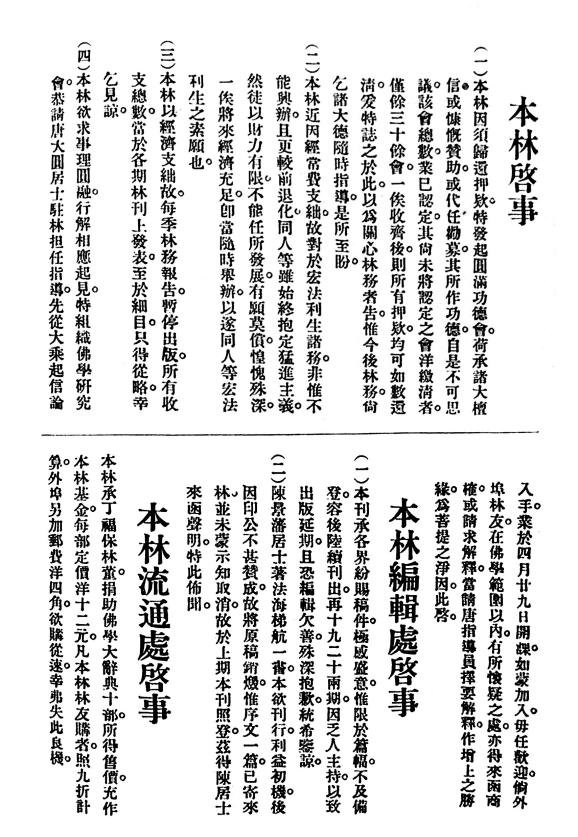 本林啓事
(一)本林因須歸還押欵。特發起圓滿功德會。荷承諸大檀
信。或慷慨贊助。或代任勸募。其所作功德。自是不可思
議。該會總數。業已認定。其尚未將認定之會洋繳清者。
僅餘三十餘會。一俟收齊後。則所有押欵。均可如數還
清。爰特誌之於此。以爲關心林務者告。惟今後林務。尚
乞諸大德隨時指導。是所至盼。
(二)本林近因經常費支絀。故對於宏法利生諸務。非惟不
能興辦。且更較前退化。同人等雖始終抱定猛進主義。
然徒以財力有限。不能任所發展。有願莫償。惶愧殊深。
一俟將來經濟充足。卽當隨時舉辦。以遂同人等宏法
利生之素願也。
(三)本林以經濟支絀。故每季林務報告。暫停出版。所有收
支總數。當於各期林刊上發表。至於細目。只得從略。幸
乞見諒。
(四)本林欲求事理圓融。行解相應起見。特組織佛學研究
會。恭請唐大圓居士駐林担任指導。先從大乘起信論
入手。業於四月廿九日開課。如蒙加入。毋任歡迎。倘外
埠林友。在佛學範圍以內。有所懷疑之處。亦得來函商
榷。或請求解釋。當請唐指導員擇要解釋。作增上之勝
緣。爲菩提之淨因。此啓。
本林編輯處啓事
(一)本刊承各界紛賜稿件。極感盛意。惟限於篇幅。不及備
登。容後陸續刊出。再十九二十兩期。因乏人主持。以致
出版延期。且恐編輯欠善。殊深抱歉。統希鑒諒。
(二)陳景藩居士著法海梯航一書。本欲刊行。利益初機。後
因印公不甚贊成。故將原稿銷燬。惟序文一篇。已寄來
林。並未蒙示知取消。故於上期本刊照登。茲得陳居士
來函聲明。特此佈聞。
本林流通處啓事
本林承丁福保林董捐助佛學大辭典十部。所得售價。充作
本林基金。每部定價洋十二元。凡本林林友購者。照九折計
算。外埠另加郵費洋四角。欲購從速。幸弗失此良機。